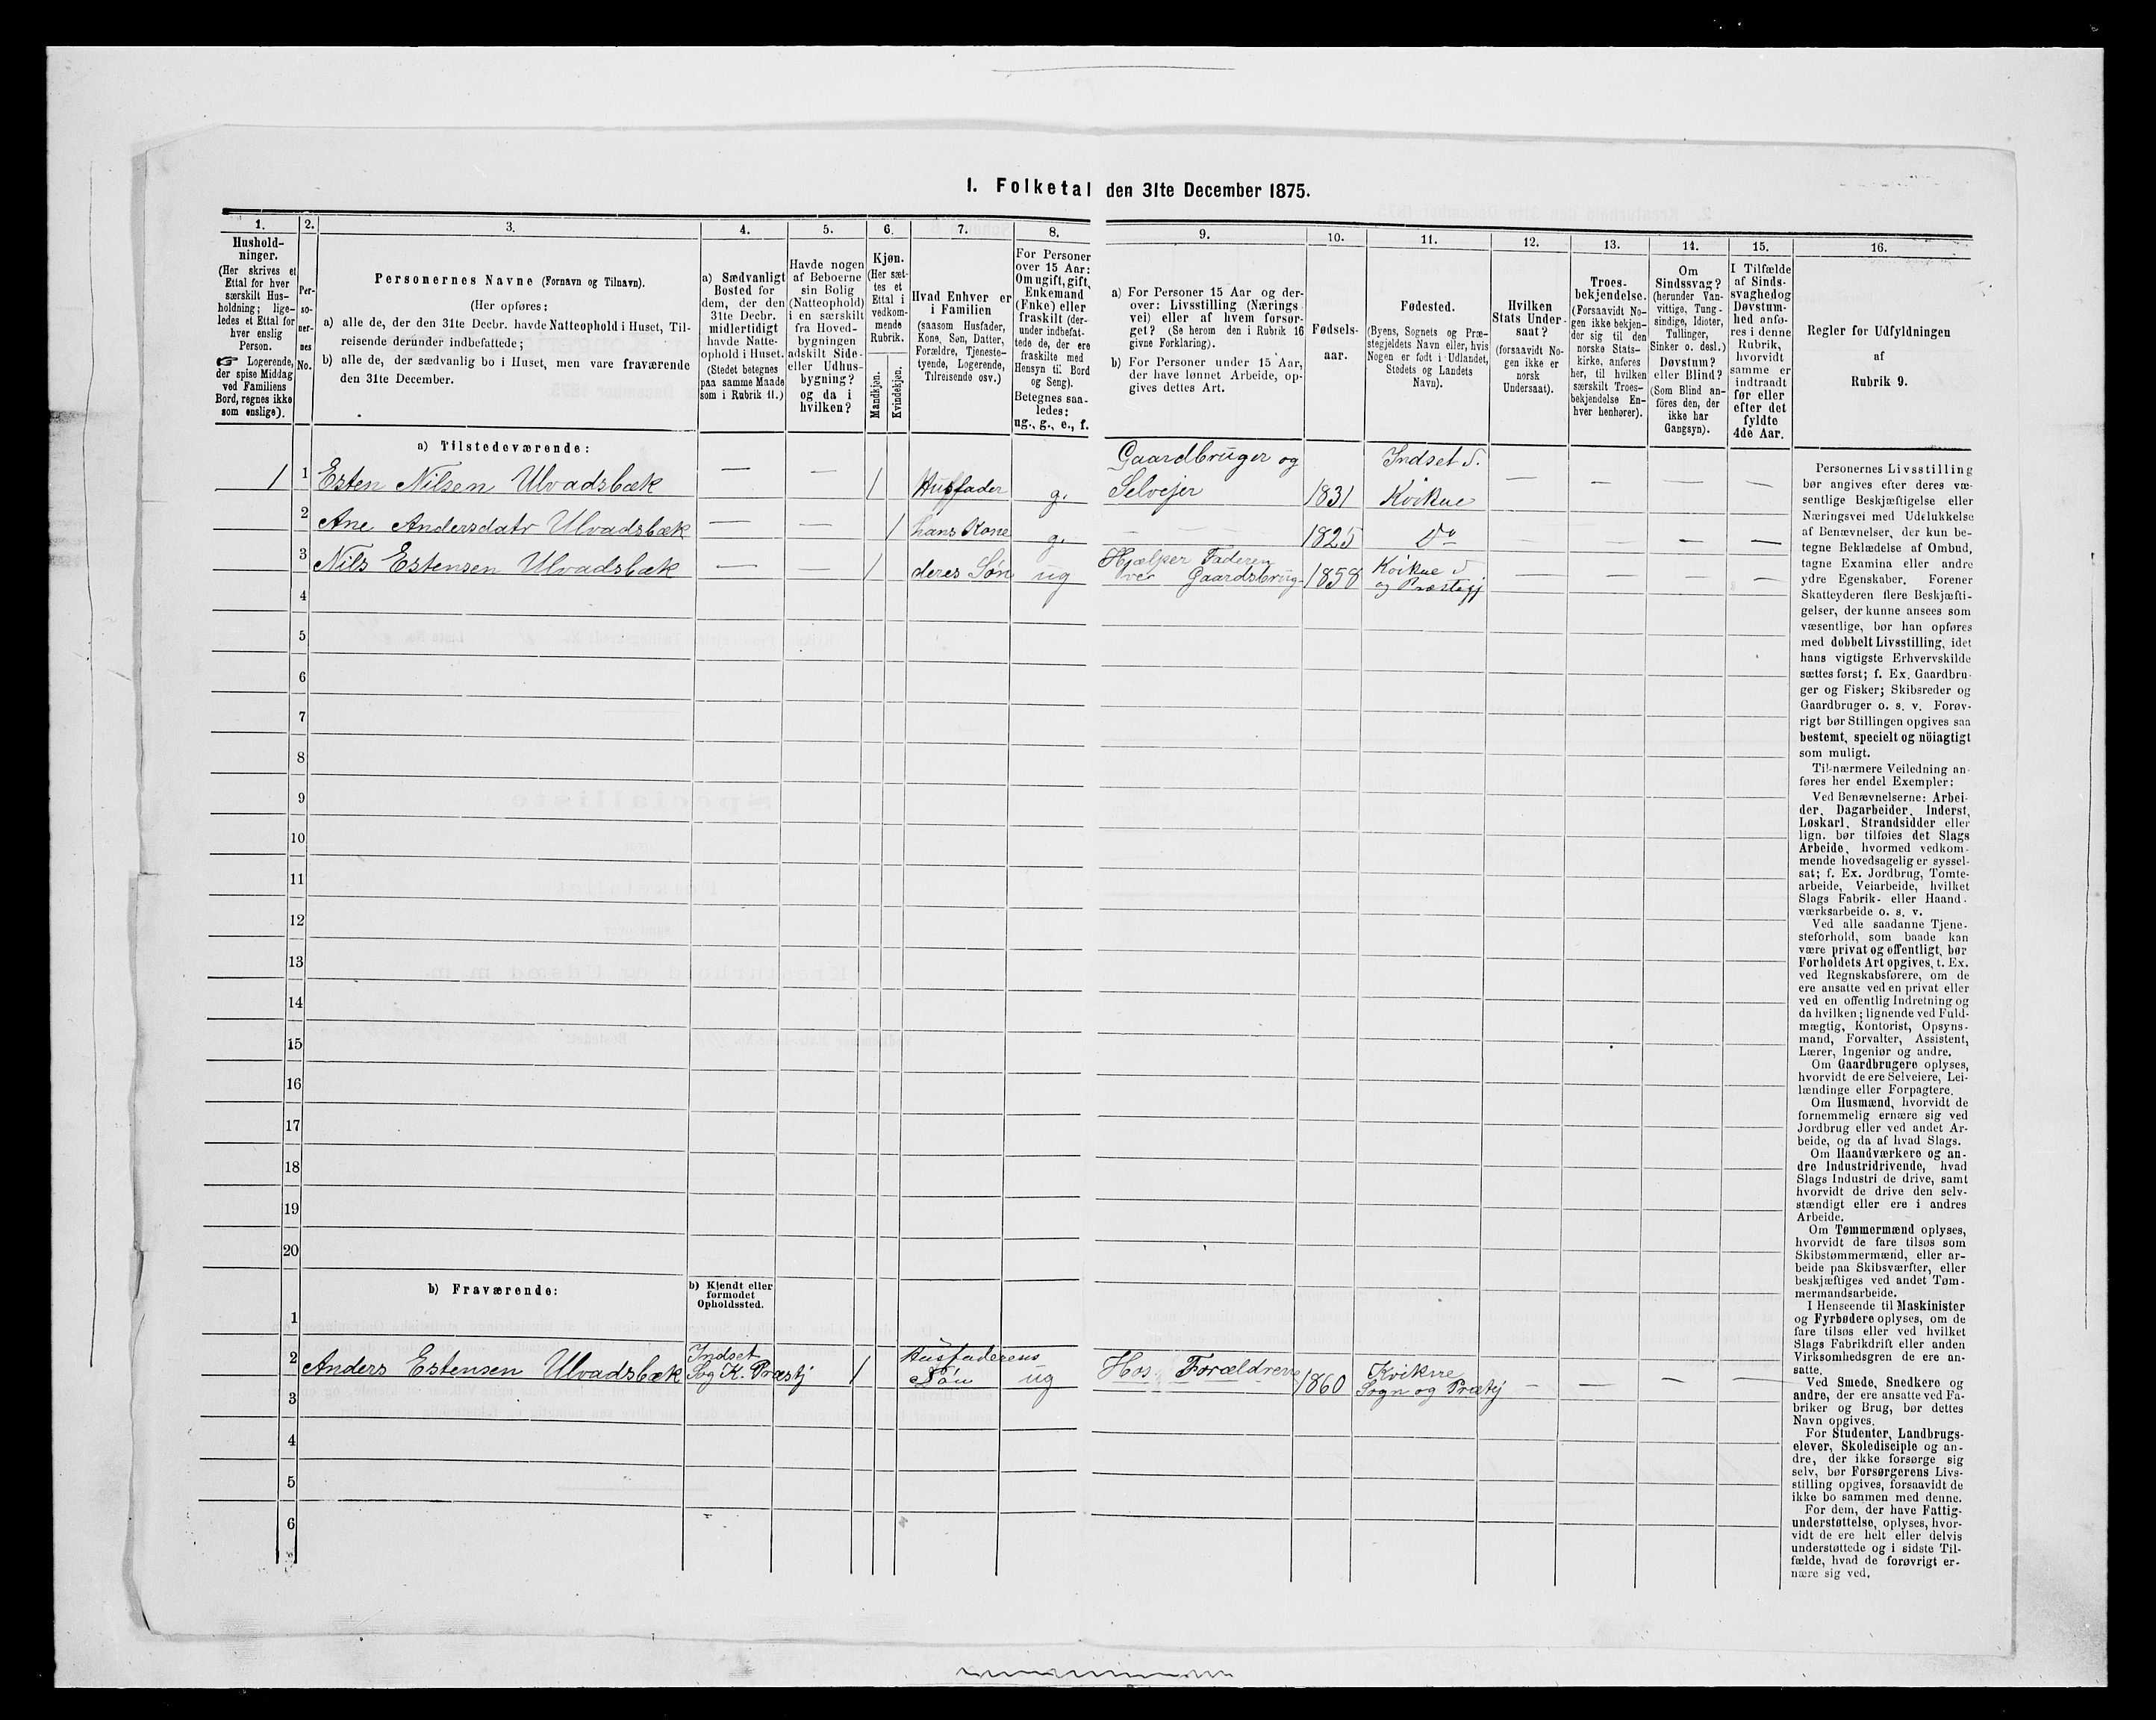 I. Folketal den 31te December 1875.
1.
Hushold-
ninger.
(Her skrives et
Ettal for hver
særskilt Hus-
holdning; lige-
ledes et Ettal for
hver enslig
Person.
☞ Logerende,
der spise Middag
ved Familiens
Bord, regnes ikke
som enslige).
2.
Per-
so-
ner-
nes
No.
3.
Personernes Navne (Fornavn og Tilnavn).
(Her opføres:
a) alle de, der den 31te Decbr. havde Natteophold i Huset, Til-
reisende derunder indbefattede;
b) alle de, der sædvanlig bo i Huset, men vare fraværende
den 31te December.
4.
a) Sædvanligt
Bosted for
dem, der den
31te Decbr.
midlertidigt
havde Natte-
ophold i Huset.
(Stedet betegnes
paa samme Maade
som i Rubrik 11.)
5.
Havde nogen
af Beboerne
sin Bolig
(Natteophold)
i en særskilt
fra Hoved-
bygningen
adskilt Side-
eller Udhus-
bygning?
og da i
hvilken?
6.
Kjøn.
(Her sæt-
tes et
Ettal i
vedkom-
mende
Rubrik.
Mandkjøn.
Kvindekjøn.
7.
Hvad Enhver er
i Familien
(saasom Husfader,
Kone, Søn, Datter,
Forældre, Tjeneste-
tyende, Logerende,
Tilreisende osv.)
8.
For Personer
over 15 Aar:
Om ugift, gift,
Enkemand
(Enke) eller
fraskilt (der-
under indbefat-
tede de, der ere
fraskilte med
Hensyn til Bord
og Seng).
Betegnes saa-
ledes:
ug., g., e., f.
9.
a) For Personer 15 Aar og der-
over: Livsstilling (Nærings-
vei) eller af hvem forsør-
get? (Se herom den i Rubrik 16
givne Forklaring).
b) For Personer under 15 Aar,
der have lønnet Arbeide, op-
gives dettes Art.
10.
Fødsels-
aar.
11.
Fødested.
(Byens, Sognets og Præ-
stegjeldets Navn eller, hvis
Nogen er født i Udlandet,
Stedets og Landets
Navn).
12.
Hvilken
Stats Under-
saat?
(forsaavidt No-
gen ikke er
norsk
Undersaat).
13.
Troes-
bekjendelse.
(Forsaavidt No-
gen ikke bekjen-
der sig til den
norske Stats-
kirke, anføres
her, til hvilken
særskilt Troes-
bekjendelse En-
hver henhører).
14.
Om
Sindssvag?
(herunder Van-
vittige, Tung-
sindige, Idioter,
Tullinger,
Sinker o. desl.)
Døvstum?
eller Blind?
(Som Blind an-
føres den, der
ikke har
Gangsyn).
15.
I Tilfælde
af Sinds-
svaghed og
Døvstum-
hed anfø-
res i denne
Rubrik,
hvorvidt
samme er
indtraadt
før eller
efter det
fyldte
4de Aar.
16.
Regler for Udfyldningen
af
Rubrik 9.
a) Tilstedeværende:
1 1 Esten Nilsen Ulvadsbæk — — 1 Husfader g. Gaardbruger og Selvejer 1831 Indset S. Kvikne — — — —
2 Ane Andersdatr Ulvadsbæk — — 1 hans Kone g. — — — 1825 Do — — — —
3 Nils Estensen Ulvadsbæk — — 1 deres Søn ug Hjælper Faderen ved Gaardsbrug 1858 Kvikne S og Præstegj — — — —
4
5
6
7
8
9
10
11
12
13
14
15
16
17
18
19
20
b) Fraværende:
b) Kjendt eller
formodet
Opholdssted.
1
2 Anders Estensen Ulvadsbæk Indset Sog K. Præstj 1 Husfaderens Søn ug Hos Forældrene 1860 Kvikne Sogn og Prætj — — — —
3
4
5
6
Personernes Livsstilling
bør angives efter deres væ-
sentlige Beskjæftigelse eller
Næringsvei med Udelukkelse
af Benævnelser, der kun be-
tegne Beklædelse af Ombud,
tagne Examina eller andre
ydre Egenskaber. Forener
Skatteyderen flere Beskjæfti-
gelser, der kunne ansees som
væsentlige, bør han opføres
med dobbelt Livsstilling, idet
hans vigtigste Erhvervskilde
sættes først; f. Ex. Gaardbru-
ger og Fisker; Skibsreder og
Gaardbruger o. s. v. Forøv-
rigt bør Stillingen opgives saa
bestemt, specielt og nöiagtigt
som muligt.
Til nærmere Veiledning an-
føres her endel Exempler:
Ved Benævnelserne: Arbei-
der, Dagarbeider, Inderst,
Løskarl, Strandsidder eller
lign. bør tilføies det Slags
Arbeide, hvormed vedkom-
mende hovedsagelig er syssel-
sat; f. Ex. Jordbrug, Tomte-
arbeide, Veiarbeide, hvilket
Slags Fabrik- eller Haand-
værksarbeide o. s. v.
Ved alle saadanne Tjene-
steforhold, som baade kan
være privat og offentligt, bør
Forholdets Art opgives, t. Ex.
ved Regnskabsførere, om de
ere ansatte ved en privat eller
ved en offentlig Indretning og
da hvilken; lignende ved Fuld-
mægtig, Kontorist, Opsyns-
mand, Forvalter, Assistent,
Lærer, Ingeniør og andre.
Om Gaardbrugere oplyses,
hvorvidt de ere Selveiere, Lei-
lændinge eller Forpagtere.
Om Husmænd, hvorvidt de
fornemmelig ernære sig ved
Jordbrug eller ved andet Ar-
beide, og da af hvad Slags.
Om Haandværkere og an-
dre Industridrivende, hvad
Slags Industri de drive, samt
hvorvidt de drive den selv-
stændigt eller ere i andres
Arbeide.
Om Tømmermænd oplyses,
hvorvidt de fare tilsøs som
Skibstømmermænd, eller ar-
beide paa Skibsværfter, eller
beskjæftiges ved andet Tøm-
mermandsarbeide.
I Henseende til Maskinister
og Fyrbødere oplyses, om de
fare tilsøs eller ved hvilket
Slags Fabrikdrift eller anden
Virksomhedsgren de ere an-
satte.
Ved Smede, Snedkere og
andre, der ere ansatte ved Fa-
briker og Brug, bør dettes
Navn opgives.
For Studenter, Landbrugs-
elever, Skoledisciple og an-
dre, der ikke forsørge sig
selv, bør Forsørgerens Livs-
stilling opgives, forsaavidt de
ikke bo sammen med denne.
For dem, der have Fattig-
understøttelse, oplyses, hvor-
vidt de ere helt eller delvis
understøttede og i sidste Til-
fælde, hvad de forøvrigt er-
nære sig ved.